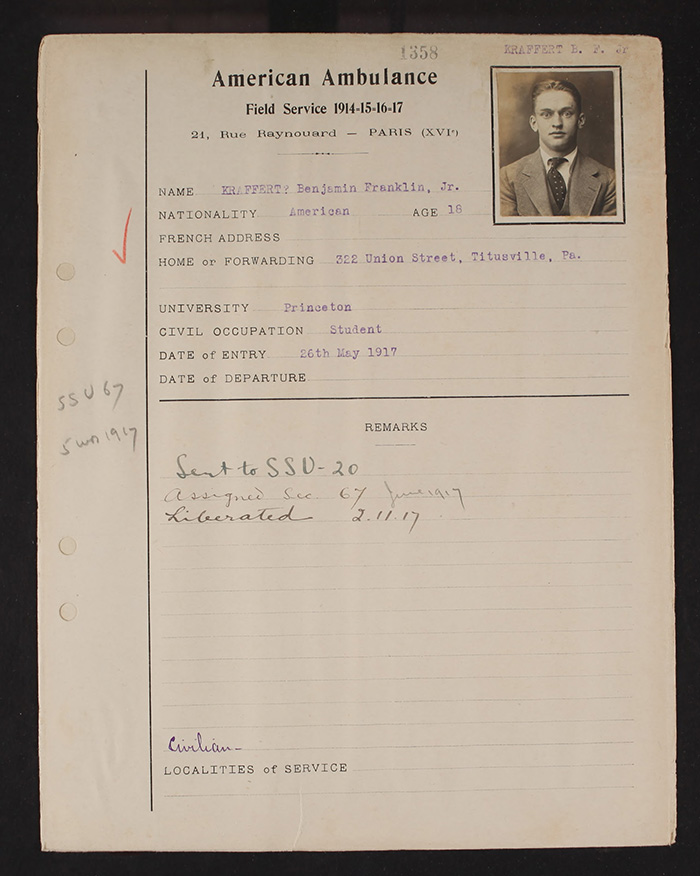 1358
KRAFFERT B. F. Jr
American Ambulance
Field Service 1914-15-16-17
21, Rue Raynouard — PARIS (XVIe)
NAME KRAFFERT? Benjamin Franklin, Jr.
NATIONALITY American AGE 18
FRENCH ADDRESS
HOME or FORWARDING 322 Union Street, Titusville, Pa.
UNIVERSITY Princeton
CIVIL OCCUPATION Student
DATE of ENTRY 26th May 1917
DATE of DEPARTURE
SSU 67
1917
REMARKS
Sent to SSU-20
Assigned Sec. 67 June 1917
Liberated 2.11.17
Civilian-
LOCALITIES of SERVICE